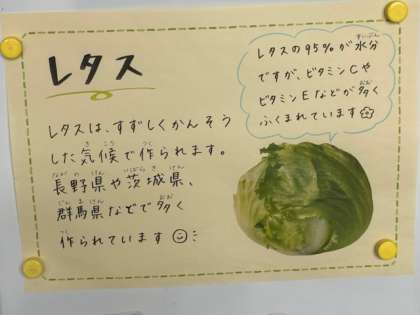 レタス
レタスの95%が水分
ですが、ビタミンCや
ビタミンEなどが多く
ふくまれています
レタスは、すずしくかんそう
した気候で作られます。
長野県や茨城県、
群馬県などで多く
作られています